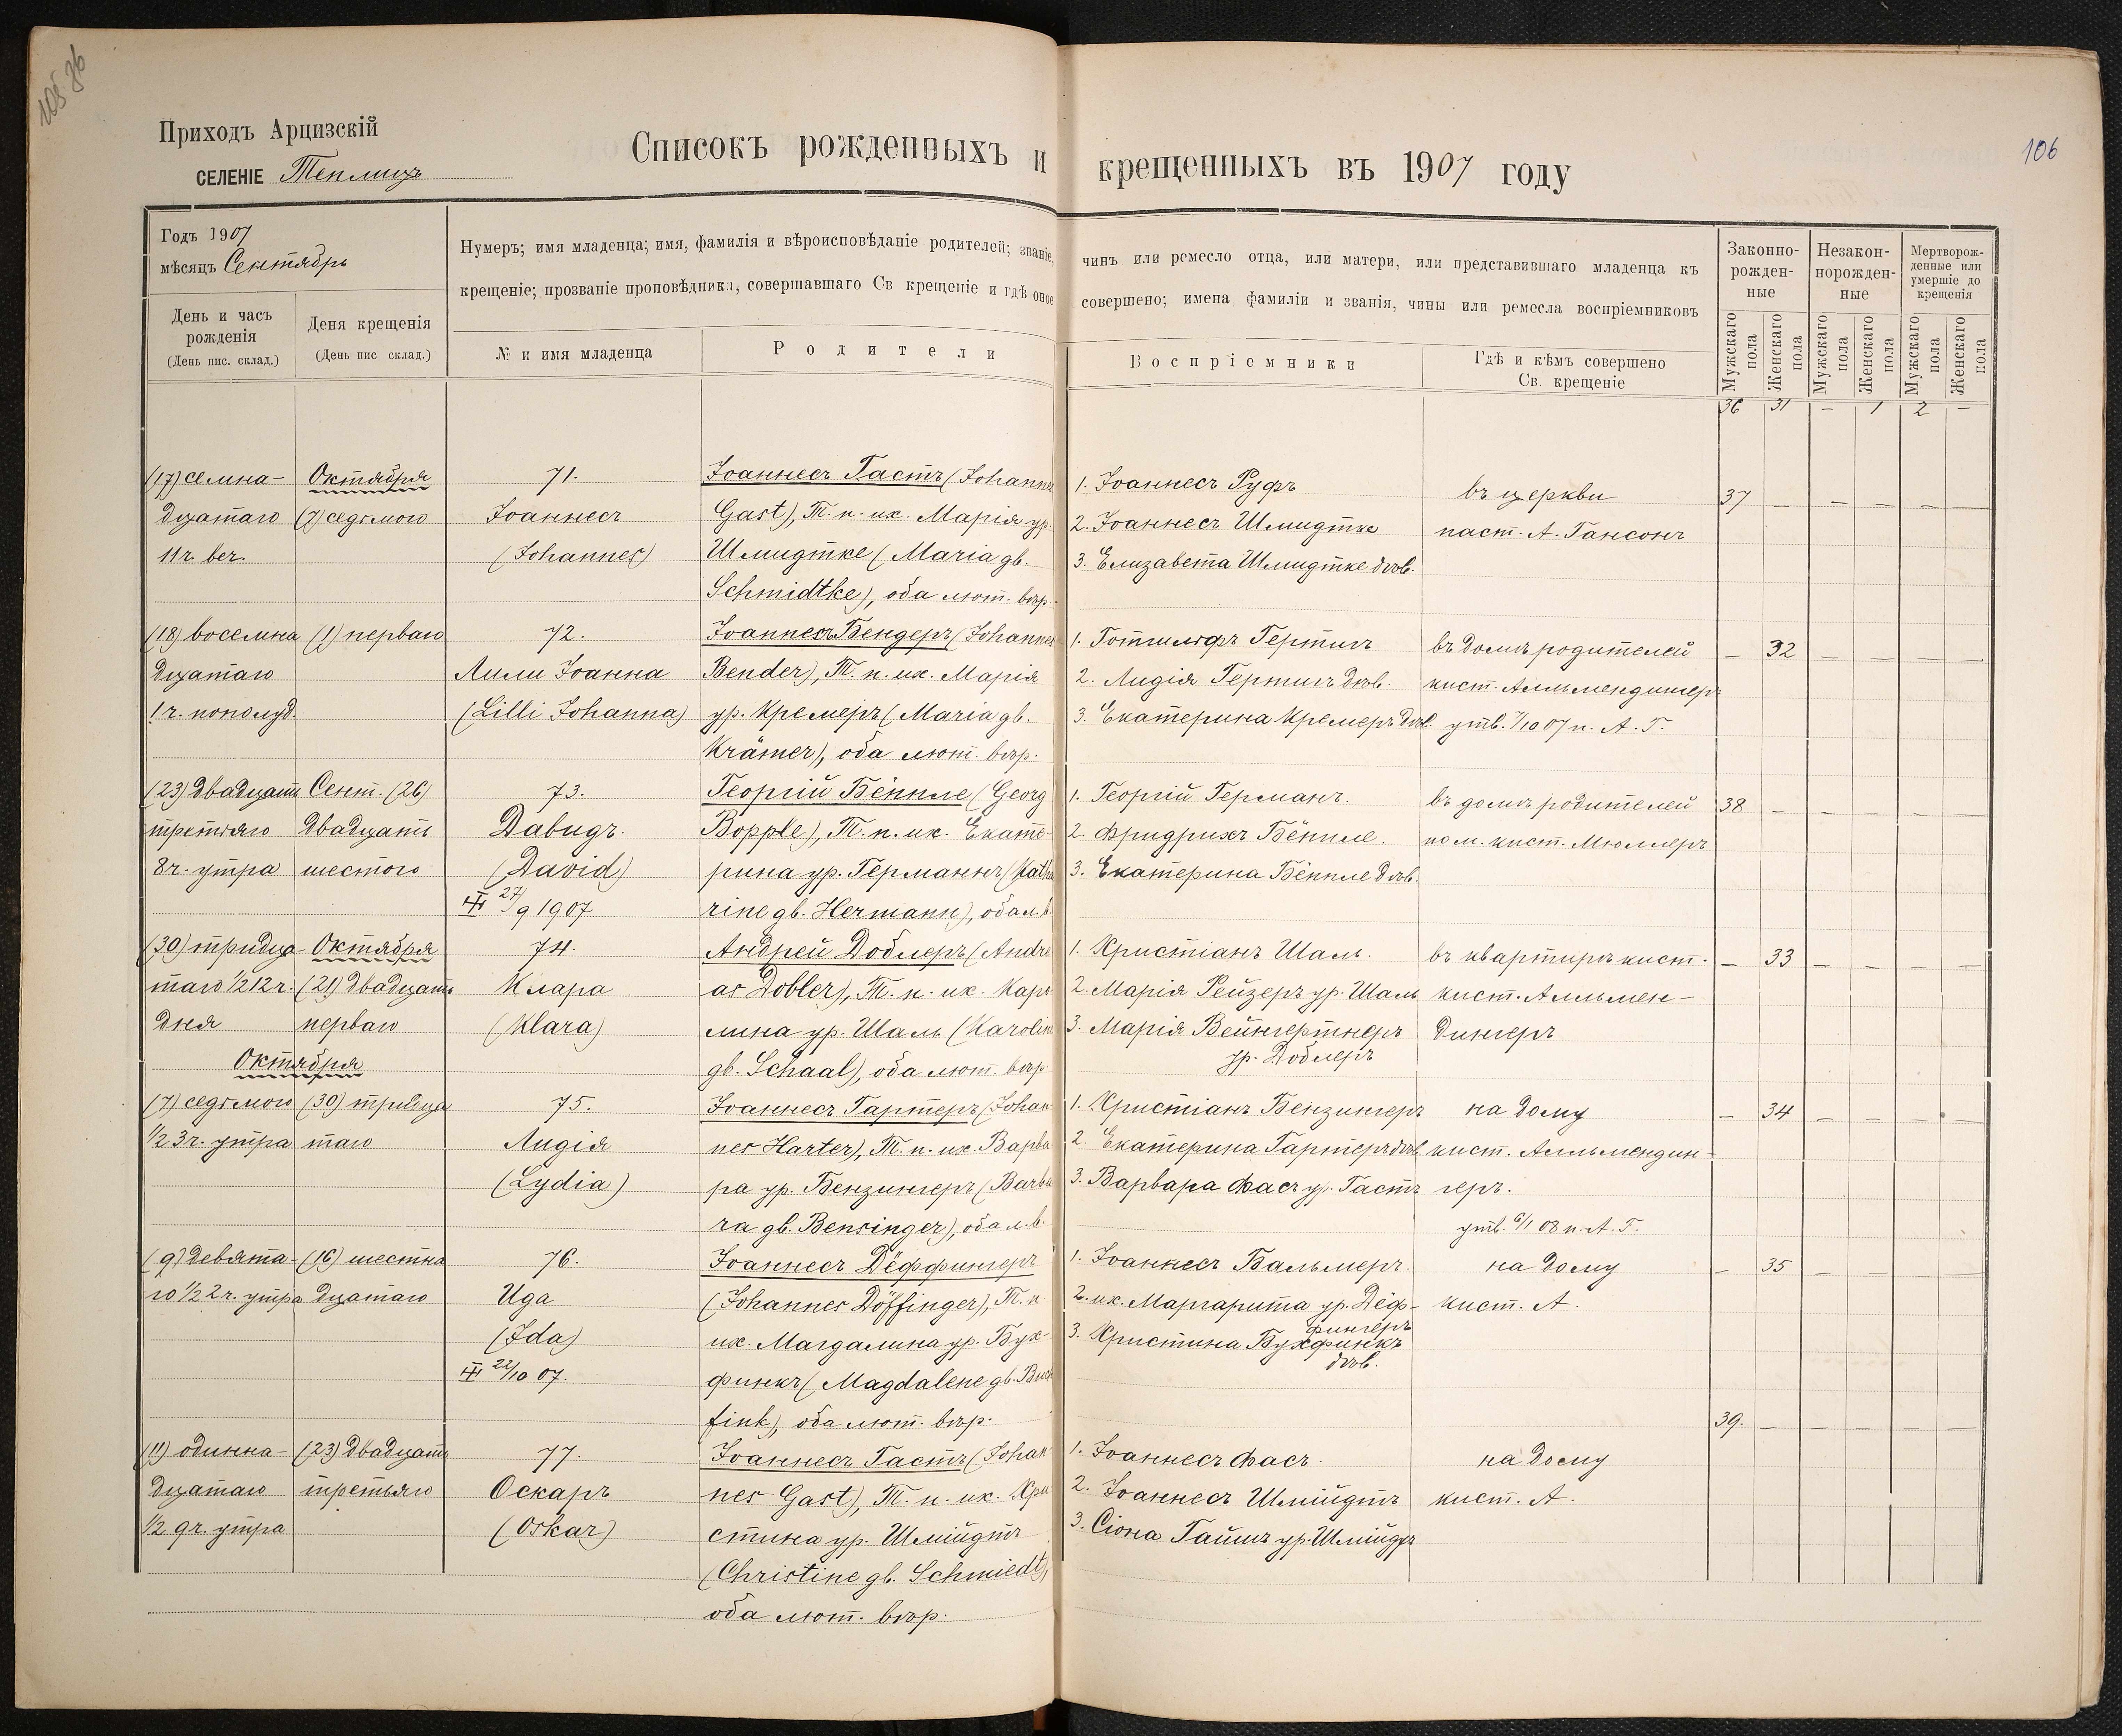 106
Приходъ Арцизскій
СЕЛЕНІЕ Теплицъ
Списокъ рожденныхъ и крещенныхъ въ 1907 году
Годъ 1907
мѣсяцъ Сентябрь
Нумеръ; имя младенца; имя, фамилія и вѣроисповѣданіе родителей; званіе, чинъ или ремесло отца, или матери, или представившаго младенца къ
крещеніе; прозваніе проповѣдника, совершавшаго Св крещеніе и гдѣ оное совершено; имена фамиліи и званія, чины или ремесла воспріемниковъ
Законно-
рожден-
ные
Незакон-
норожден-
ные
Мертворож-
денные или
умершіе до
крещенія
День и часъ
рожденія
(День пис. склад.)
Деня крещенія
(День пис склад.)
№ и имя младенца
Родители
Воспріемники
Гдѣ и кѣмъ совершено
Св. крещеніе
Мужскаго пола
Женскаго пола
Мужскаго пола
Женскаго пола
Мужскаго пола
Женскаго пола
36 31 — 1 2 —
(17) семна-
дцатаго
11 ч. веч.
Октября
(7) седьмого
71.
Іоаннесъ
(Johannes)
Іоаннесъ Гастъ (Johannes
Gast), Т. п. их. Марія ур.
Шмидтке (Maria gb.
Schmidtke), оба лют. вѣр.
1. Іоаннесъ Руфъ
2. Іоаннесъ Шмидтке
3. Елизавета Шмидтке дѣв.
въ церкви
паст. А. Гансонъ
37 — — — — —
(18) восемна
дцатаго
1 ч. пополуд.
(1) перваго
72.
Лили Іоанна
(Lilli Johanna)
Іоаннесъ Бендеръ (Johannes
Bender), Т. п. их. Марія
ур. Кремеръ (Maria gb.
Krämer), оба лют. вѣр.
1. Готтилифъ Гертигъ
2. Лидія Гертигъ дѣв.
3. Екатерина Кремеръ дѣв.
въ домѣ родителей
кист. Алльмендингеръ
утв. 7/10 07 п. А. Г.
— 32 — — — —
(23) двадцать
третьяго
8 ч. утра
Сент. (26)
двадцать
шестого
73.
Давидъ.
(David)
27/9 1907
Георгій Бёппле (Georg
Bopple), Т. п. их. Екате-
рина ур. Германнъ (Kathe
rine gb. Hermann), оба л. в.
1. Георгій Германъ.
2. Фридрихъ Бёппле.
3. Екатерина Бёппле дѣв.
въ домѣ родителей
пом. кист. Мюллеръ
38 — — — — —
(30) тридца-
таго 1/2 12 ч.
дня
Октября
(21) двадцать
перваго
74.
Клара
(Klara)
Андрей Доблеръ (Andre
as Dobler), Т. п. их. Каро
лина ур. Шаль (Karoline
gb. Schaal), оба лют. вѣр.
1. Христіанъ Шаль.
2. Марія Рейзеръ ур. Шаль
3. Марія Вейнгертнеръ
ур. Доблеръ
въ квартирѣ кист.
кист. Алльмен-
дингеръ
— 33 — — — —
Октября
(7) седьмого
1/2 3 ч. утра
(30) тридца
таго
75.
Лидія
(Lydia)
Іоаннесъ Гартеръ (Johan
nes Harter), Т. п. их. Варва
ра ур. Бензингеръ (Barba
ra gb. Bensinger), оба л. в.
1. Христіанъ Бензингеръ
2. Екатерина Гартеръ дѣв.
3. Варвара Фасъ ур. Гастъ
на дому
кист. Алльмендин-
геръ.
утв. 6/1 08 п. А. Г.
— 34 — — — —
(9) девята-
го 1/2 2 ч. утра
(16) шестна
дцатаго
76.
Ида
(Ida)
22/10 07.
Іоаннесъ Дёффингеръ
(Johannes Döffinger), Т. п.
их. Магдалина ур. Бух-
финкъ (Magdalene gb. Buch
fink), оба лют. вѣр.
1. Іоаннесъ Бальмеръ.
2. их. Маргарита ур. Дёф-
фингеръ
3. Христина Бухфинкъ
дѣв.
на дому
кист. А.
— 35 — — — —
(11) одинна-
дцатаго
1/2 9 ч. утра
(23) двадцать
третьяго
77.
Оскаръ
(Oskar)
Іоаннесъ Гастъ (Johan
nes Gast), Т. п. их. Хри
стина ур. Шмійдтъ
(Christine gb. Schmiedt),
оба лют. вѣр.
1. Іоаннесъ Фасъ.
2. Іоаннесъ Шмійдтъ
3. Сіона Гаишъ ур. Шмійдтъ
на дому
кист. А.
39. — — — — —